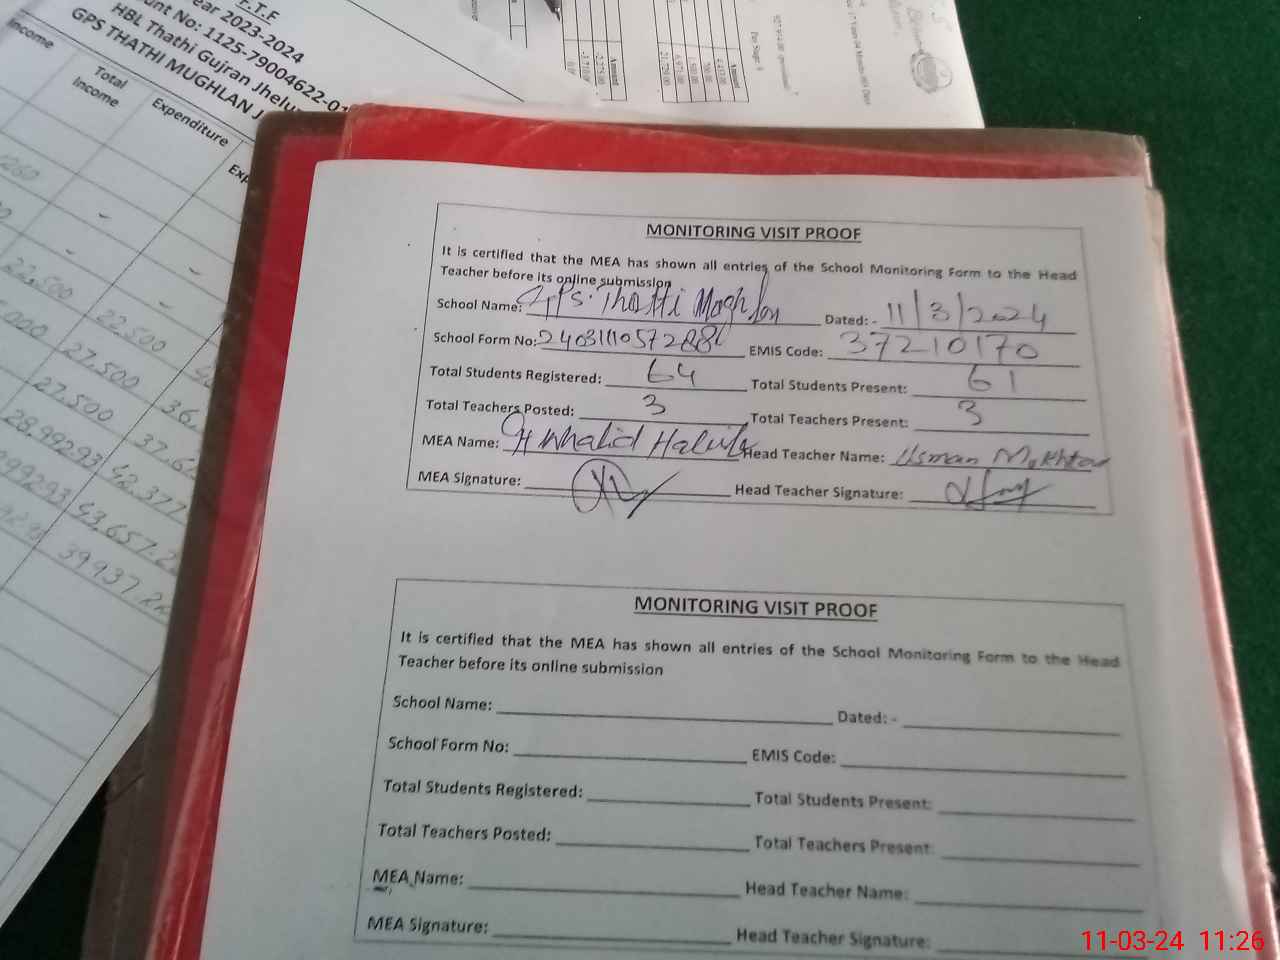 T.T.F
ear 2023-2024
unt No: 1125-79004622-01
HBL Thathi Gujran Jhelu
GPS THATHI MUGHLAN J
Income
Total Income
Expenditure
Exp
22,500
22,500
27,500
36,
27,500
28,99293
42,377
99293
43,657.2
39937.2
MONITORING VISIT PROOF
It is certified that the MEA has shown all entries of the School Monitoring Form to the Head
Teacher before its online submission
School Name: GPS. Thatti Moghlan Dated: - 11/3/2024
School Form No: EMIS Code: 37210170
Total Students Registered: 64 Total Students Present: 61
Total Teachers Posted: 3 Total Teachers Present: 3
MEA Name: Head Teacher Name: Usman Mukhtar
MEA Signature: Head Teacher Signature:
MONITORING VISIT PROOF
It is certified that the MEA has shown all entries of the School Monitoring Form to the Head
Teacher before its online submission
School Name: Dated: -
School Form No: EMIS Code:
Total Students Registered: Total Students Present:
Total Teachers Posted: Total Teachers Present:
MEA Name: Head Teacher Name:
MEA Signature: Head Teacher Signature:
11-03-24 11:26